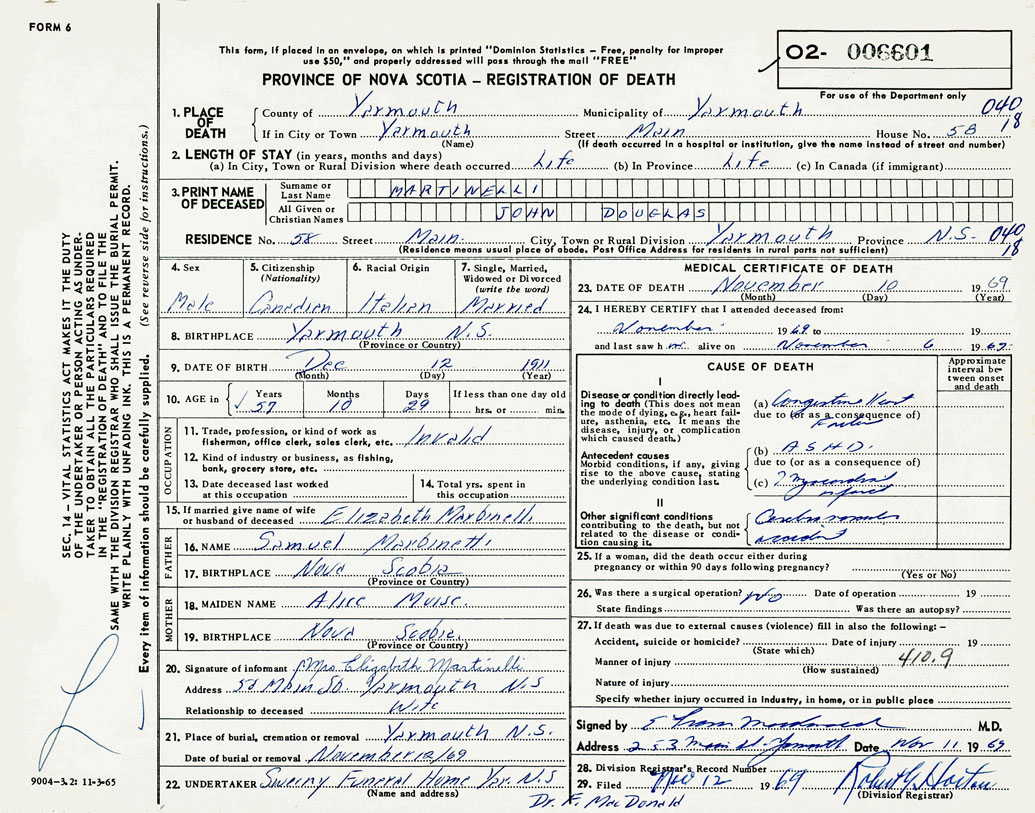 FORM 6
This form, if placed in an envelope, on which is printed "Dominion Statistics – Free, penalty for improper
use $50," and properly addressed will pass through the mail "FREE"
PROVINCE OF NOVA SCOTIA – REGISTRATION OF DEATH
02- 006601
For use of the Department only
1. PLACE OF DEATH
County of Yarmouth Municipality of Yarmouth 040
If in City or Town Yarmouth Street Main House No. 58 18
(Name) (If death occurred in a hospital or institution, give the name instead of street and number)
2. LENGTH OF STAY (in years, months and days)
(a) In City, Town or Rural Division where death occurred Life (b) In Province Life (c) In Canada (if immigrant)
3. PRINT NAME OF DECEASED
Surname or Last Name MARTINELLI
All Given or Christian Names JOHN DOUGLAS
RESIDENCE No. 58 Street Main City, Town or Rural Division Yarmouth Province N.S. 040
(Residence means usual place of abode. Post Office Address for residents in rural parts not sufficient) 18
4. Sex
Male
5. Citizenship
(Nationality)
Canadian
6. Racial Origin
Italian
7. Single, Married,
Widowed or Divorced
(write the word)
Married
8. BIRTHPLACE Yarmouth N.S.
(Province or Country)
9. DATE OF BIRTH Dec 12 1911
(Month) (Day) (Year)
10. AGE in
Years Months Days If less than one day old
57 10 29 hrs. or min.
OCCUPATION
11. Trade, profession, or kind of work as
fisherman, office clerk, sales clerk, etc. Invalid
12. Kind of industry or business, as fishing,
bank, grocery store, etc.
13. Date deceased last worked
at this occupation
14. Total yrs. spent in
this occupation
15. If married give name of wife
or husband of deceased Elizabeth Martinelli
FATHER
16. NAME Samuel Martinelli
17. BIRTHPLACE Nova Scotia
(Province or Country)
MOTHER
18. MAIDEN NAME Alice Muise
19. BIRTHPLACE Nova Scotia
(Province or Country)
20. Signature of informant Mrs Elizabeth Martinelli
Address 58 Main St. Yarmouth N.S
Relationship to deceased Wife
21. Place of burial, cremation or removal Yarmouth N.S.
Date of burial or removal November 12/69
22. UNDERTAKER Sweeny Funeral Home Yar. N.S
(Name and address)
MEDICAL CERTIFICATE OF DEATH
23. DATE OF DEATH November 10 1969
(Month) (Day) (Year)
24. I HEREBY CERTIFY that I attended deceased from:
November 1969 to 19
and last saw h alive on November 6 1969.
CAUSE OF DEATH
Approximate
interval be-
tween onset
and death
I
Disease or condition directly lead-
ing to death (This does not mean
the mode of dying, e.g., heart fail-
ure, asthenia, etc. It means the
disease, injury, or complication
which caused death.)
(a) Congestive Heart
due to (or as a consequence of)
Failure
Antecedent causes
Morbid conditions, if any, giving
rise to the above cause, stating
the underlying condition last.
(b) ASHD.
due to (or as a consequence of)
(c) ? myocardial
infarct
II
Other significant conditions
contributing to the death, but not
related to the disease or condi-
tion causing it.
Cerebrovascular
accident
25. If a woman, did the death occur either during
pregnancy or within 90 days following pregnancy?
(Yes or No)
26. Was there a surgical operation? No Date of operation 19
State findings Was there an autopsy?
27. If death was due to external causes (violence) fill in also the following: –
Accident, suicide or homicide? Date of injury 19
(State which)
Manner of injury 410.9
(How sustained)
Nature of injury
Specify whether injury occurred in industry, in home, or in public place
Signed by Macdonald M.D.
Address 253 Main St. Yarmouth Date Nov 11 1969
28. Division Registrar's Record Number
29. Filed Nov 12 1969 Robert G. Horton
(Division Registrar)
Dr. F. MacDonald
SEC. 14 – VITAL STATISTICS ACT MAKES IT THE DUTY
OF THE UNDERTAKER OR PERSON ACTING AS UNDER-
TAKER TO OBTAIN ALL THE PARTICULARS REQUIRED
IN THE "REGISTRATION OF DEATH" AND TO FILE THE
SAME WITH THE DIVISION REGISTRAR WHO SHALL ISSUE THE BURIAL PERMIT.
WRITE PLAINLY WITH UNFADING INK. THIS IS A PERMANENT RECORD.
Every item of information should be carefully supplied. (See reverse side for instructions.)
9004-3.2: 11-3-65